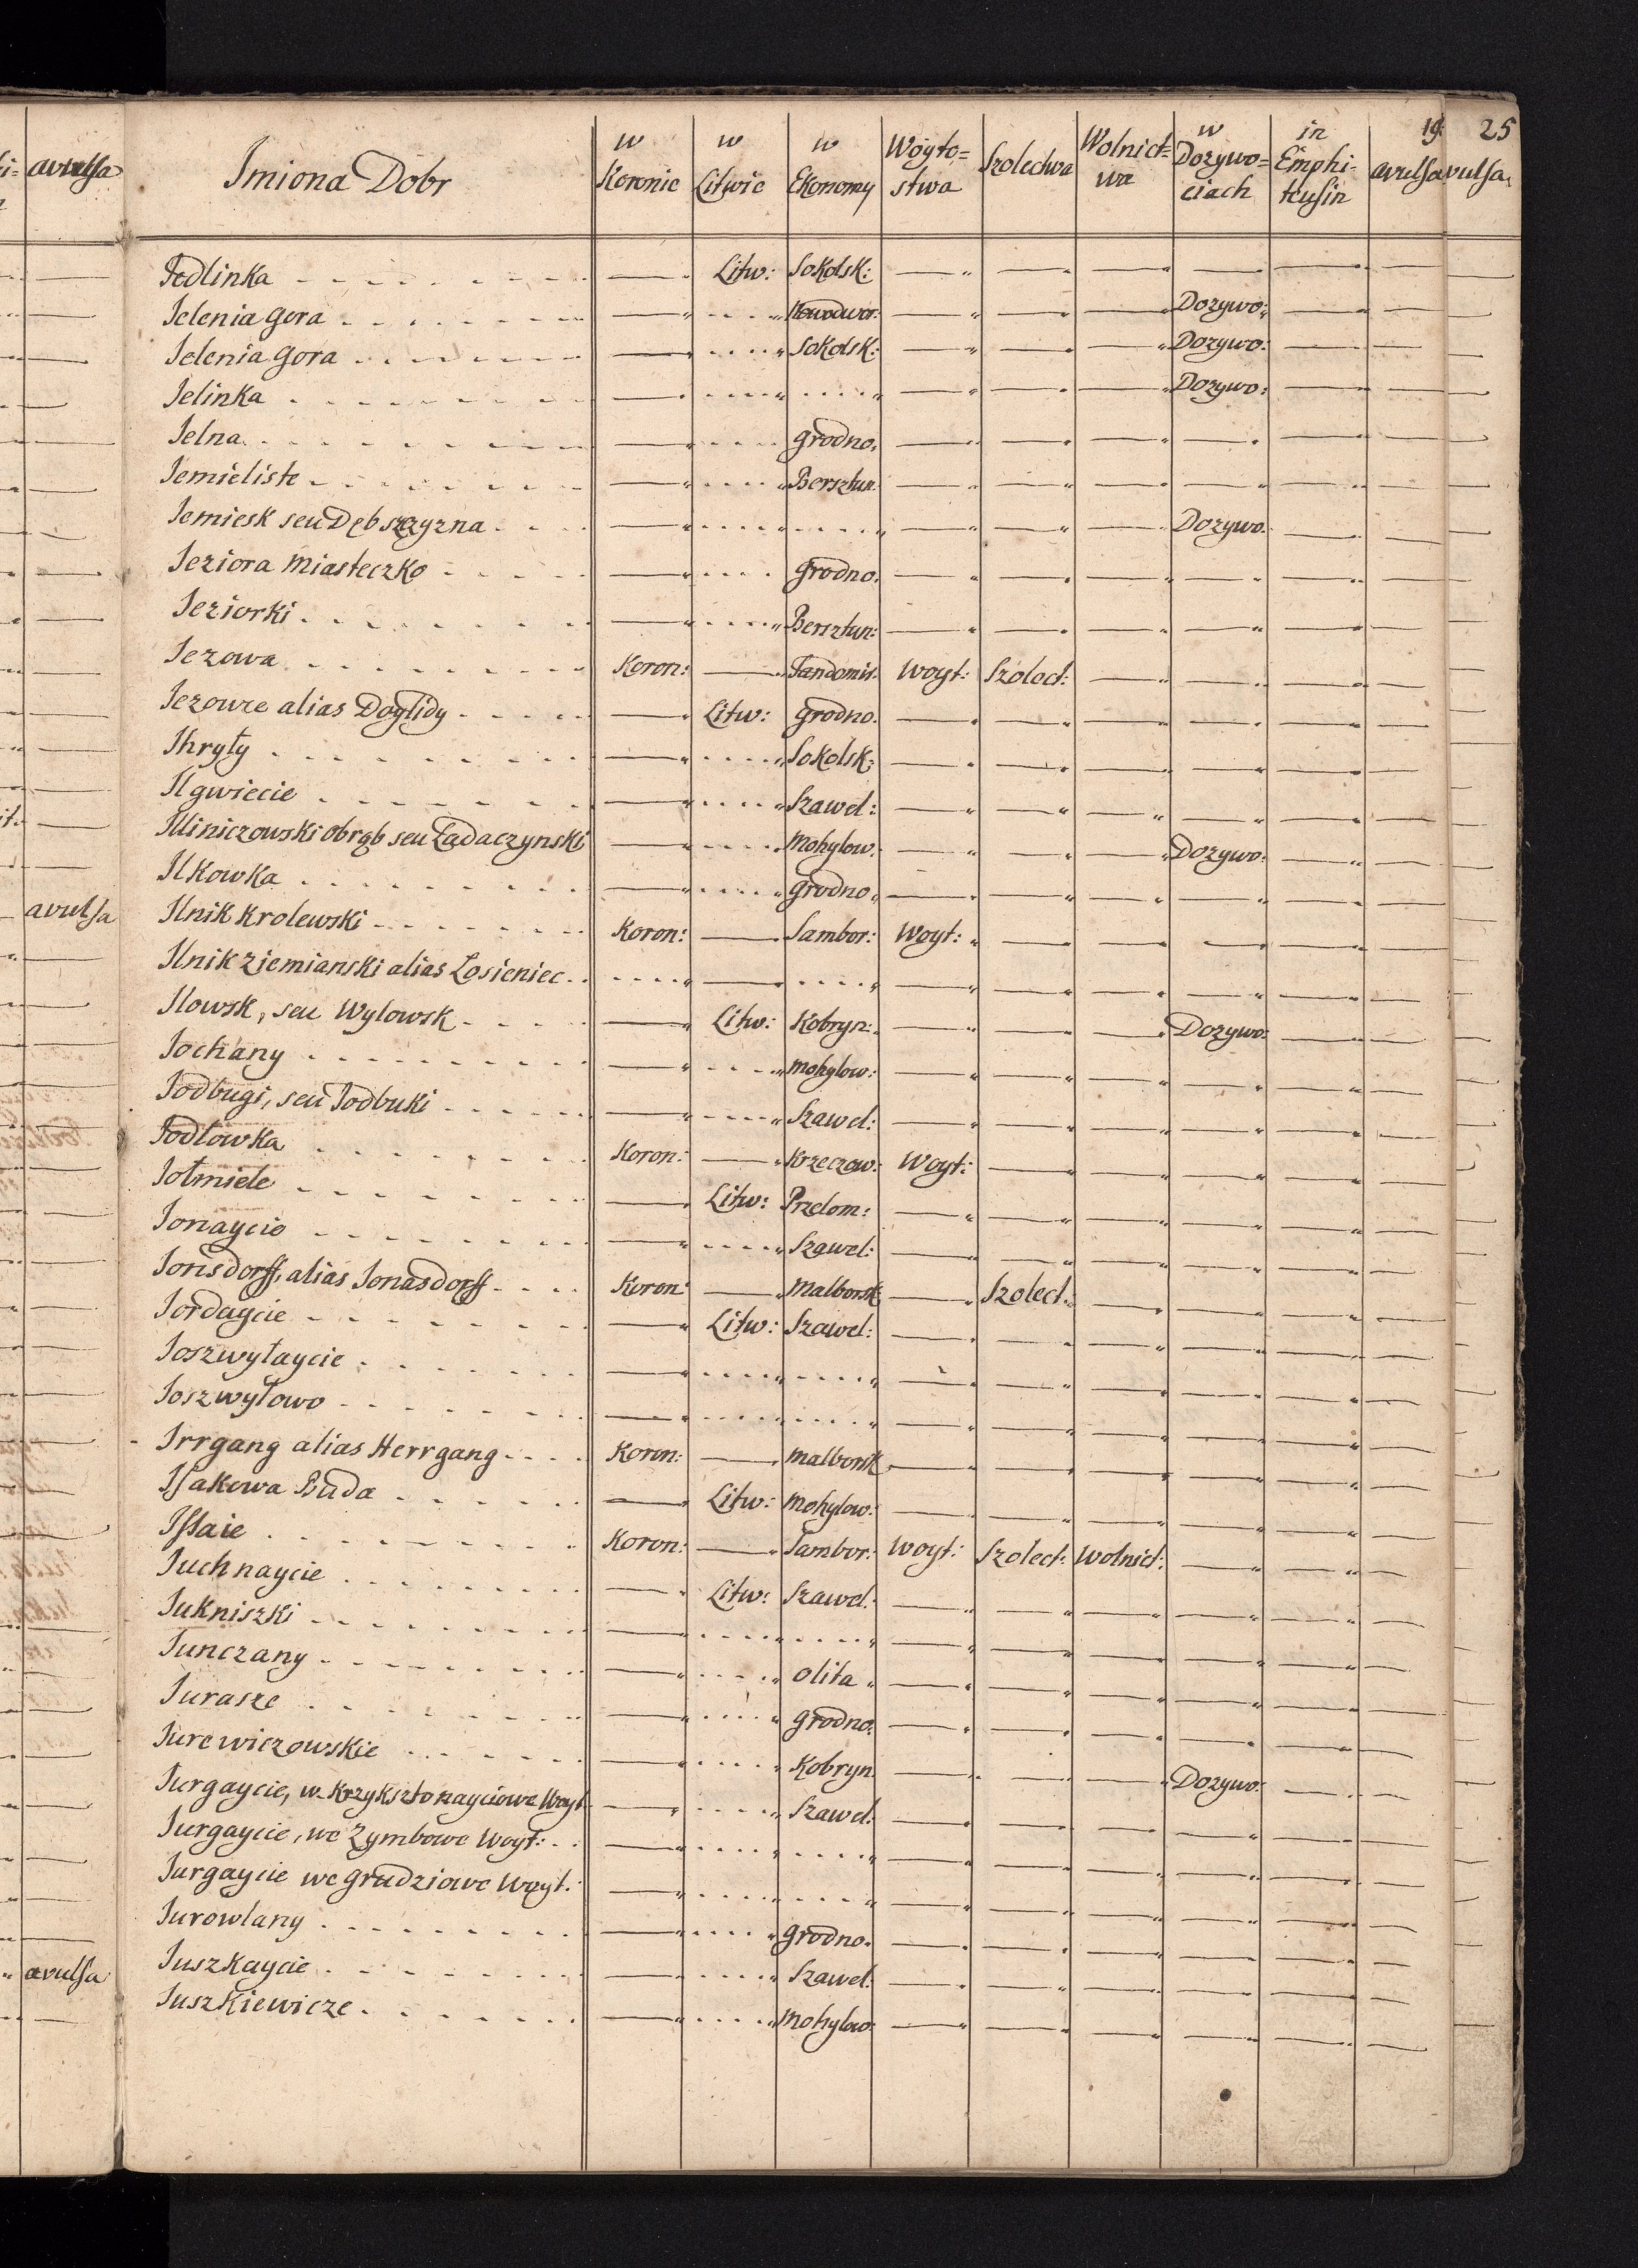 19. 25
Imiona Dobr | w Koronie | w Litwie | w Ekonomy | Woyto=stwa | Szolectwa | Wolnict=wa | w Dozywo=ciach | in Emphi-teusin | avulsa | vulsa
Jedlinka | — | Litw: | Sokolsk: | — | — | — | — | — | —
Jelenia Gora | — | .... | Nowodwor: | — | — | — | Dozywo: | — | —
Jelenia Gora | — | .... | Sokolsk: | — | — | — | Dozywo: | — | —
Jelinka | — | .... | .... | — | — | — | Dozywo: | — | —
Jelna | — | .... | Grodno. | — | — | — | — | — | —
Jemieliste | — | .... | Bersztun. | — | — | — | — | — | —
Jemiesk seu Dębszczyzna | — | .... | .... | — | — | — | Dozywo. | — | —
Jeziora Miasteczko | — | .... | Grodno. | — | — | — | — | — | —
Jeziorki | — | .... | Bersztun: | — | — | — | — | — | —
Jezowa | Koron: | — | Sandomir. | Woyt: | Szolect: | — | — | — | —
Jezowze alias Doglidy | — | Litw: | Grodno. | — | — | — | — | — | —
Ihryły | — | .... | Sokolsk: | — | — | — | — | — | —
Ilgwiecie | — | .... | Szawel: | — | — | — | — | — | —
Illiniczowski obrąb seu Ładaczynski | — | .... | Mohylow: | — | — | — | Dozywo: | — | —
Ilkowka | — | .... | Grodno. | — | — | — | — | — | —
Ilnik Krolewski | Koron: | — | Sambor: | Woyt: | — | — | — | — | —
Ilnik ziemianski alias Łosieniec | .... | — | .... | — | — | — | — | — | —
Ilowsk, seu Wylowsk | — | Litw: | Kobryn: | — | — | — | Dozywo: | — | —
Jochany | — | .... | Mohylow: | — | — | — | — | — | —
Jodbugi, seu Jodbuki | — | .... | Szawel: | — | — | — | — | — | —
Jodlowka | Koron: | — | Krzeczow: | Woyt: | — | — | — | — | —
Jołmiele | — | Litw: | Przelom: | — | — | — | — | — | —
Jonaycio | — | .... | Szawel: | — | — | — | — | — | —
Jonsdorff, alias Jonasdorff | Koron: | — | Malborsk: | — | Szolect: | — | — | — | —
Jordaycie | — | Litw: | Szawel: | — | — | — | — | — | —
Joszwyłaycie | — | .... | .... | — | — | — | — | — | —
Joszwyłowo | — | .... | .... | — | — | — | — | — | —
Irrgang alias Herrgang | Koron: | — | Malborsk | — | — | — | — | — | —
Isakowa Buda | — | Litw: | Mohylow: | — | — | — | — | — | —
Issaie | Koron: | — | Sambor: | Woyt: | Szolect: | Wolnict: | — | — | —
Juchnaycie | — | Litw: | Szawel. | — | — | — | — | — | —
Jukniszki | — | .... | .... | — | — | — | — | — | —
Junczany | — | .... | Olita | — | — | — | — | — | —
Jurasze | — | .... | Grodno. | — | — | — | — | — | —
Jurewiczowskie | — | .... | Kobryn | — | — | — | Dozywo: | — | —
Jurgaycie, w Krzyksztonayciowe Woyt. | — | .... | Szawel: | — | — | — | — | — | —
Jurgaycie, we Zymbowe Woyt: | — | .... | .... | — | — | — | — | — | —
Jurgaycie we Grudziowe Woyt. | — | .... | .... | — | — | — | — | — | —
Jurowlany | — | .... | Grodno. | — | — | — | — | — | —
Juszkaycie | — | .... | Szawel. | — | — | — | — | — | —
Juszkiewicze | — | .... | Mohylow: | — | — | — | — | — | —
avulsa
avulsa
avulsa